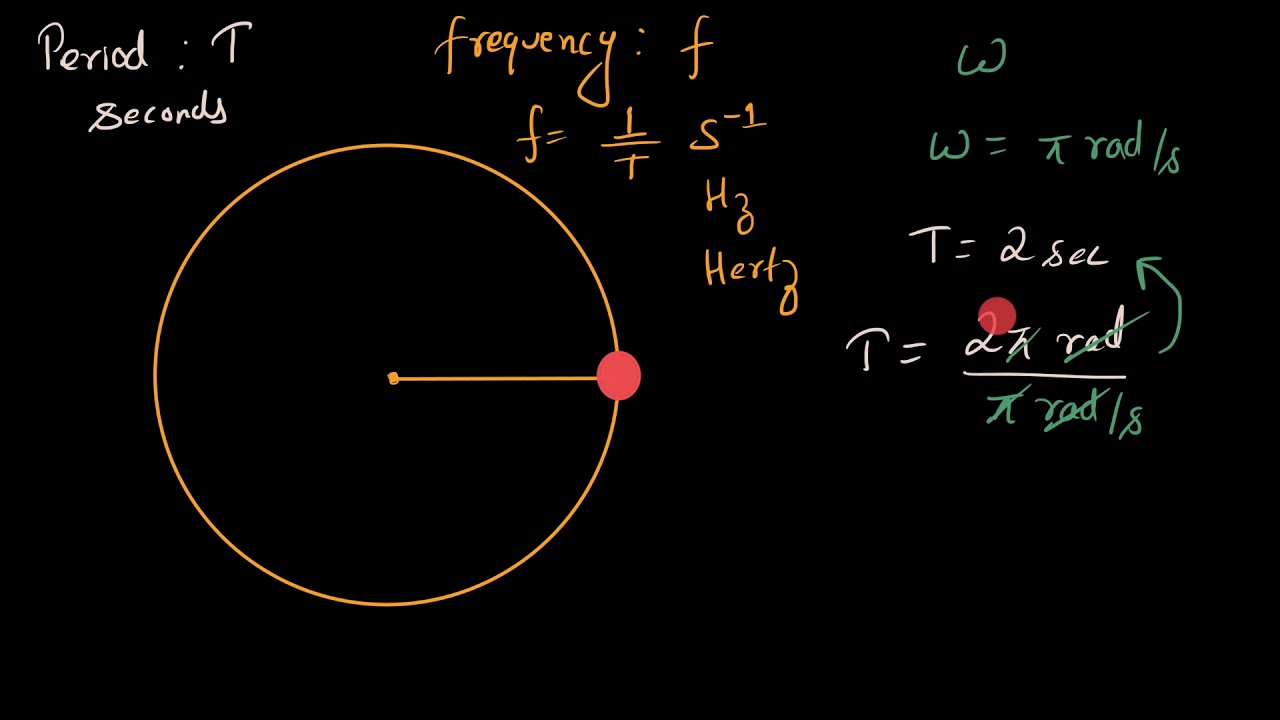 Period : T
seconds
frequency : f
f = 1/T s⁻¹
Hz
Hertz
ω
ω = π rad/s
T = 2 sec
T = 2π rad
π rad/s